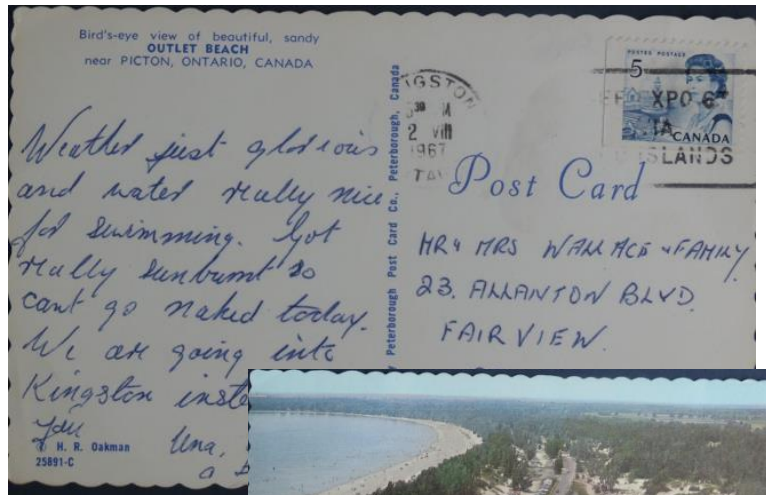 Bird's-eye view of beautiful, sandy
OUTLET BEACH
near PICTON, ONTARIO, CANADA
Weather just glorious
and water really nice
for swimming. Got
really sunburnt so
cant go naked today.
We are going into
Kingston
H. R. Oakman
25891-C
Una,
Peterborough Post Card Co., Peterborough, Canada
2 VIII
1967
POSTES POSTAGE
5
CANADA
XPO 6
ISLANDS
Post Card
MR & MRS WALLACE & FAMILY
23, ALLANTON BLVD.
FAIRVIEW.